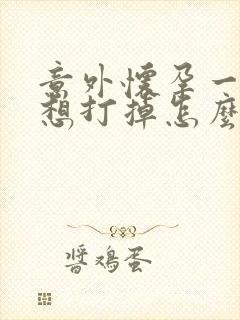 意外懷孕一
想打掉怎麼
醬鸡蛋